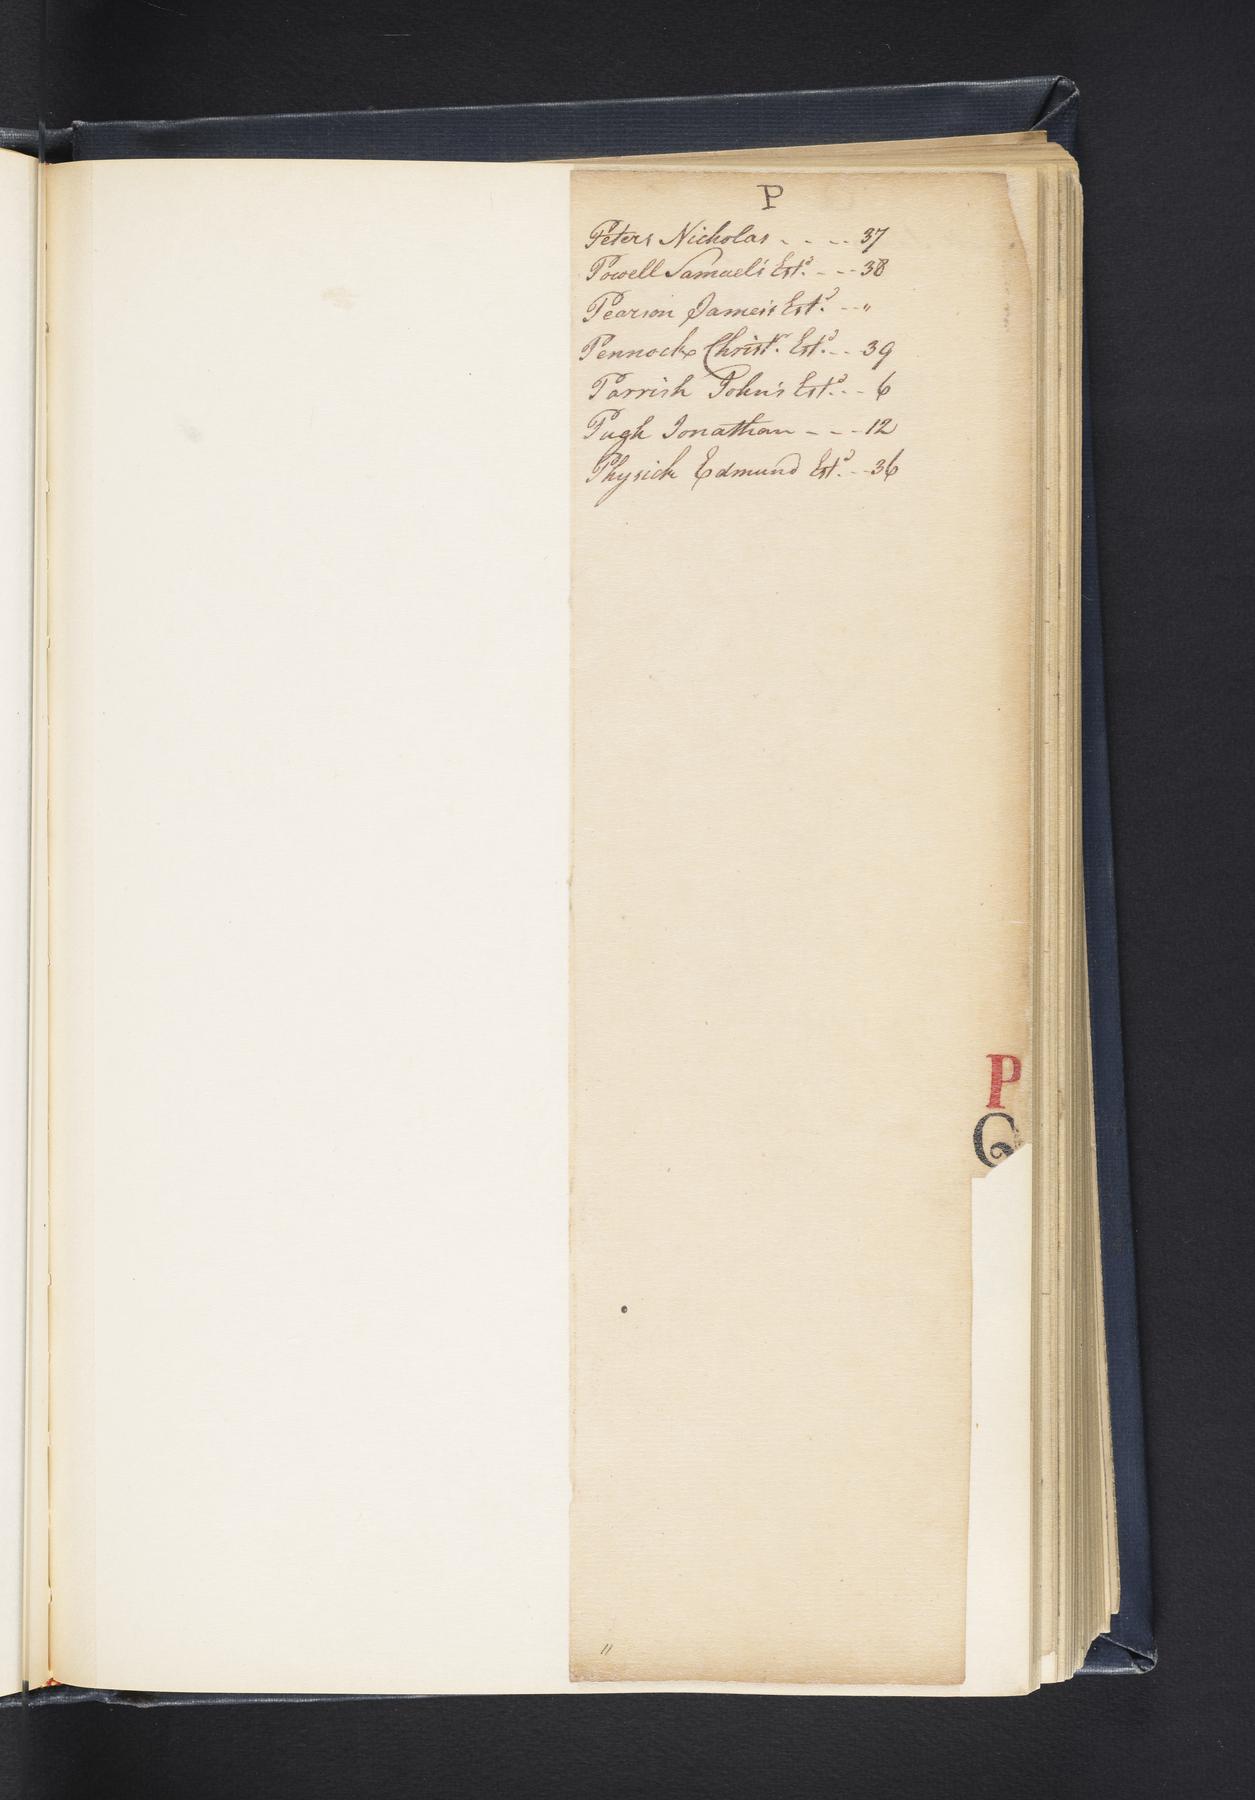 P
Peters Nicholas - - - - 37
Powell Samuel's Estd. - - - 38
Pearson James's Estd. - - "
Pennock Christr. Estd. - - 39
Parrish John's Estd. - - 6
Pugh Jonathan - - - 12
Physick Edmund Estd. - - 36
P
Q
11